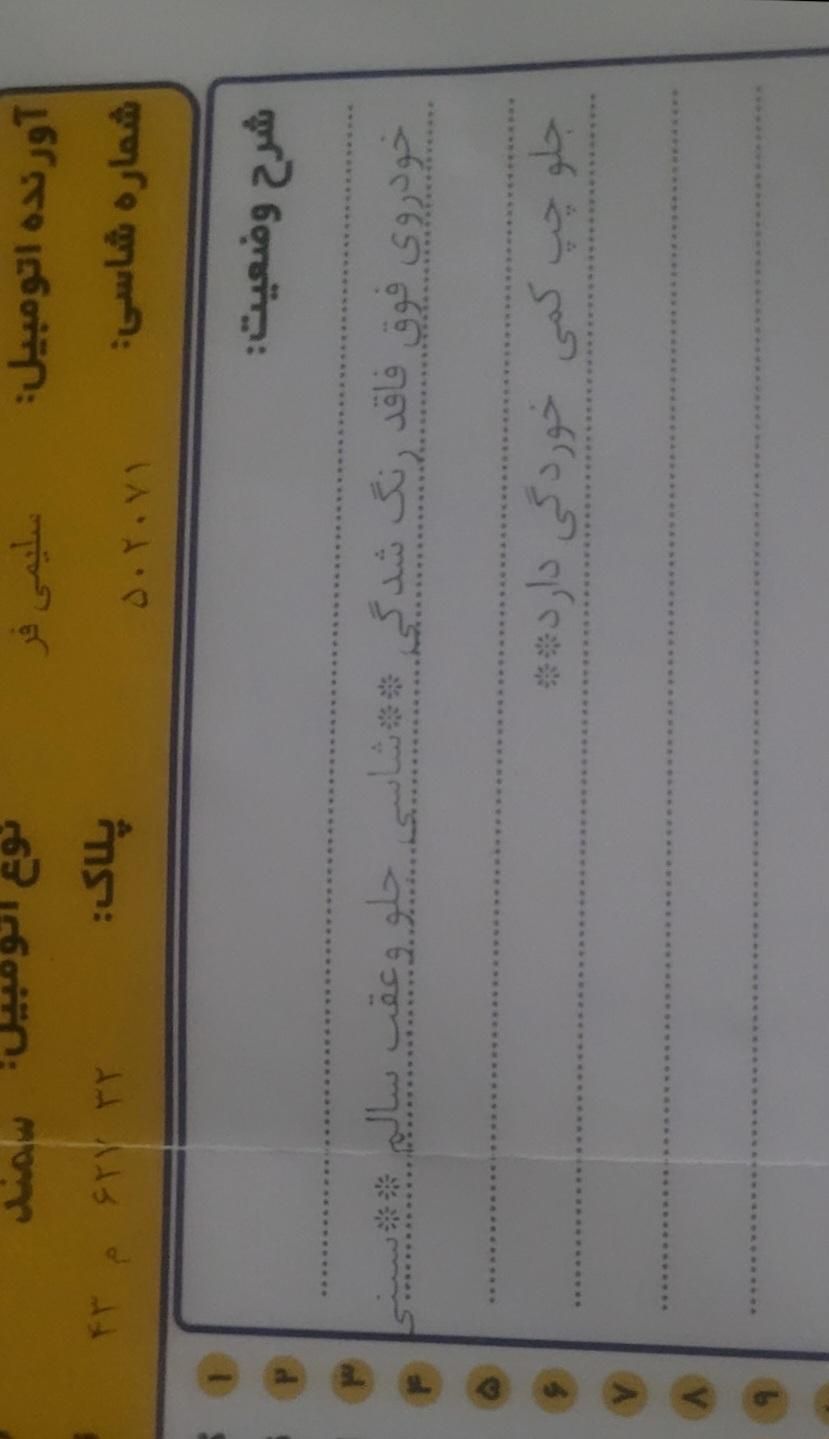 آورنده اتومبیل: سلیمی فر نوع اتومبیل: سمند
شماره شاسی: ۵۰۲۰۷۱ پلاک: ۳۲ ۶۲۷ م ۴۳
شرح وضعیت:
خودروی فوق فاقد رنگ شدگی **شاسی جلو وعقب سالم **سینی
جلو چپ کمی خوردگی دارد**
۱
۲
۳
۴
۵
۶
۷
۸
۹